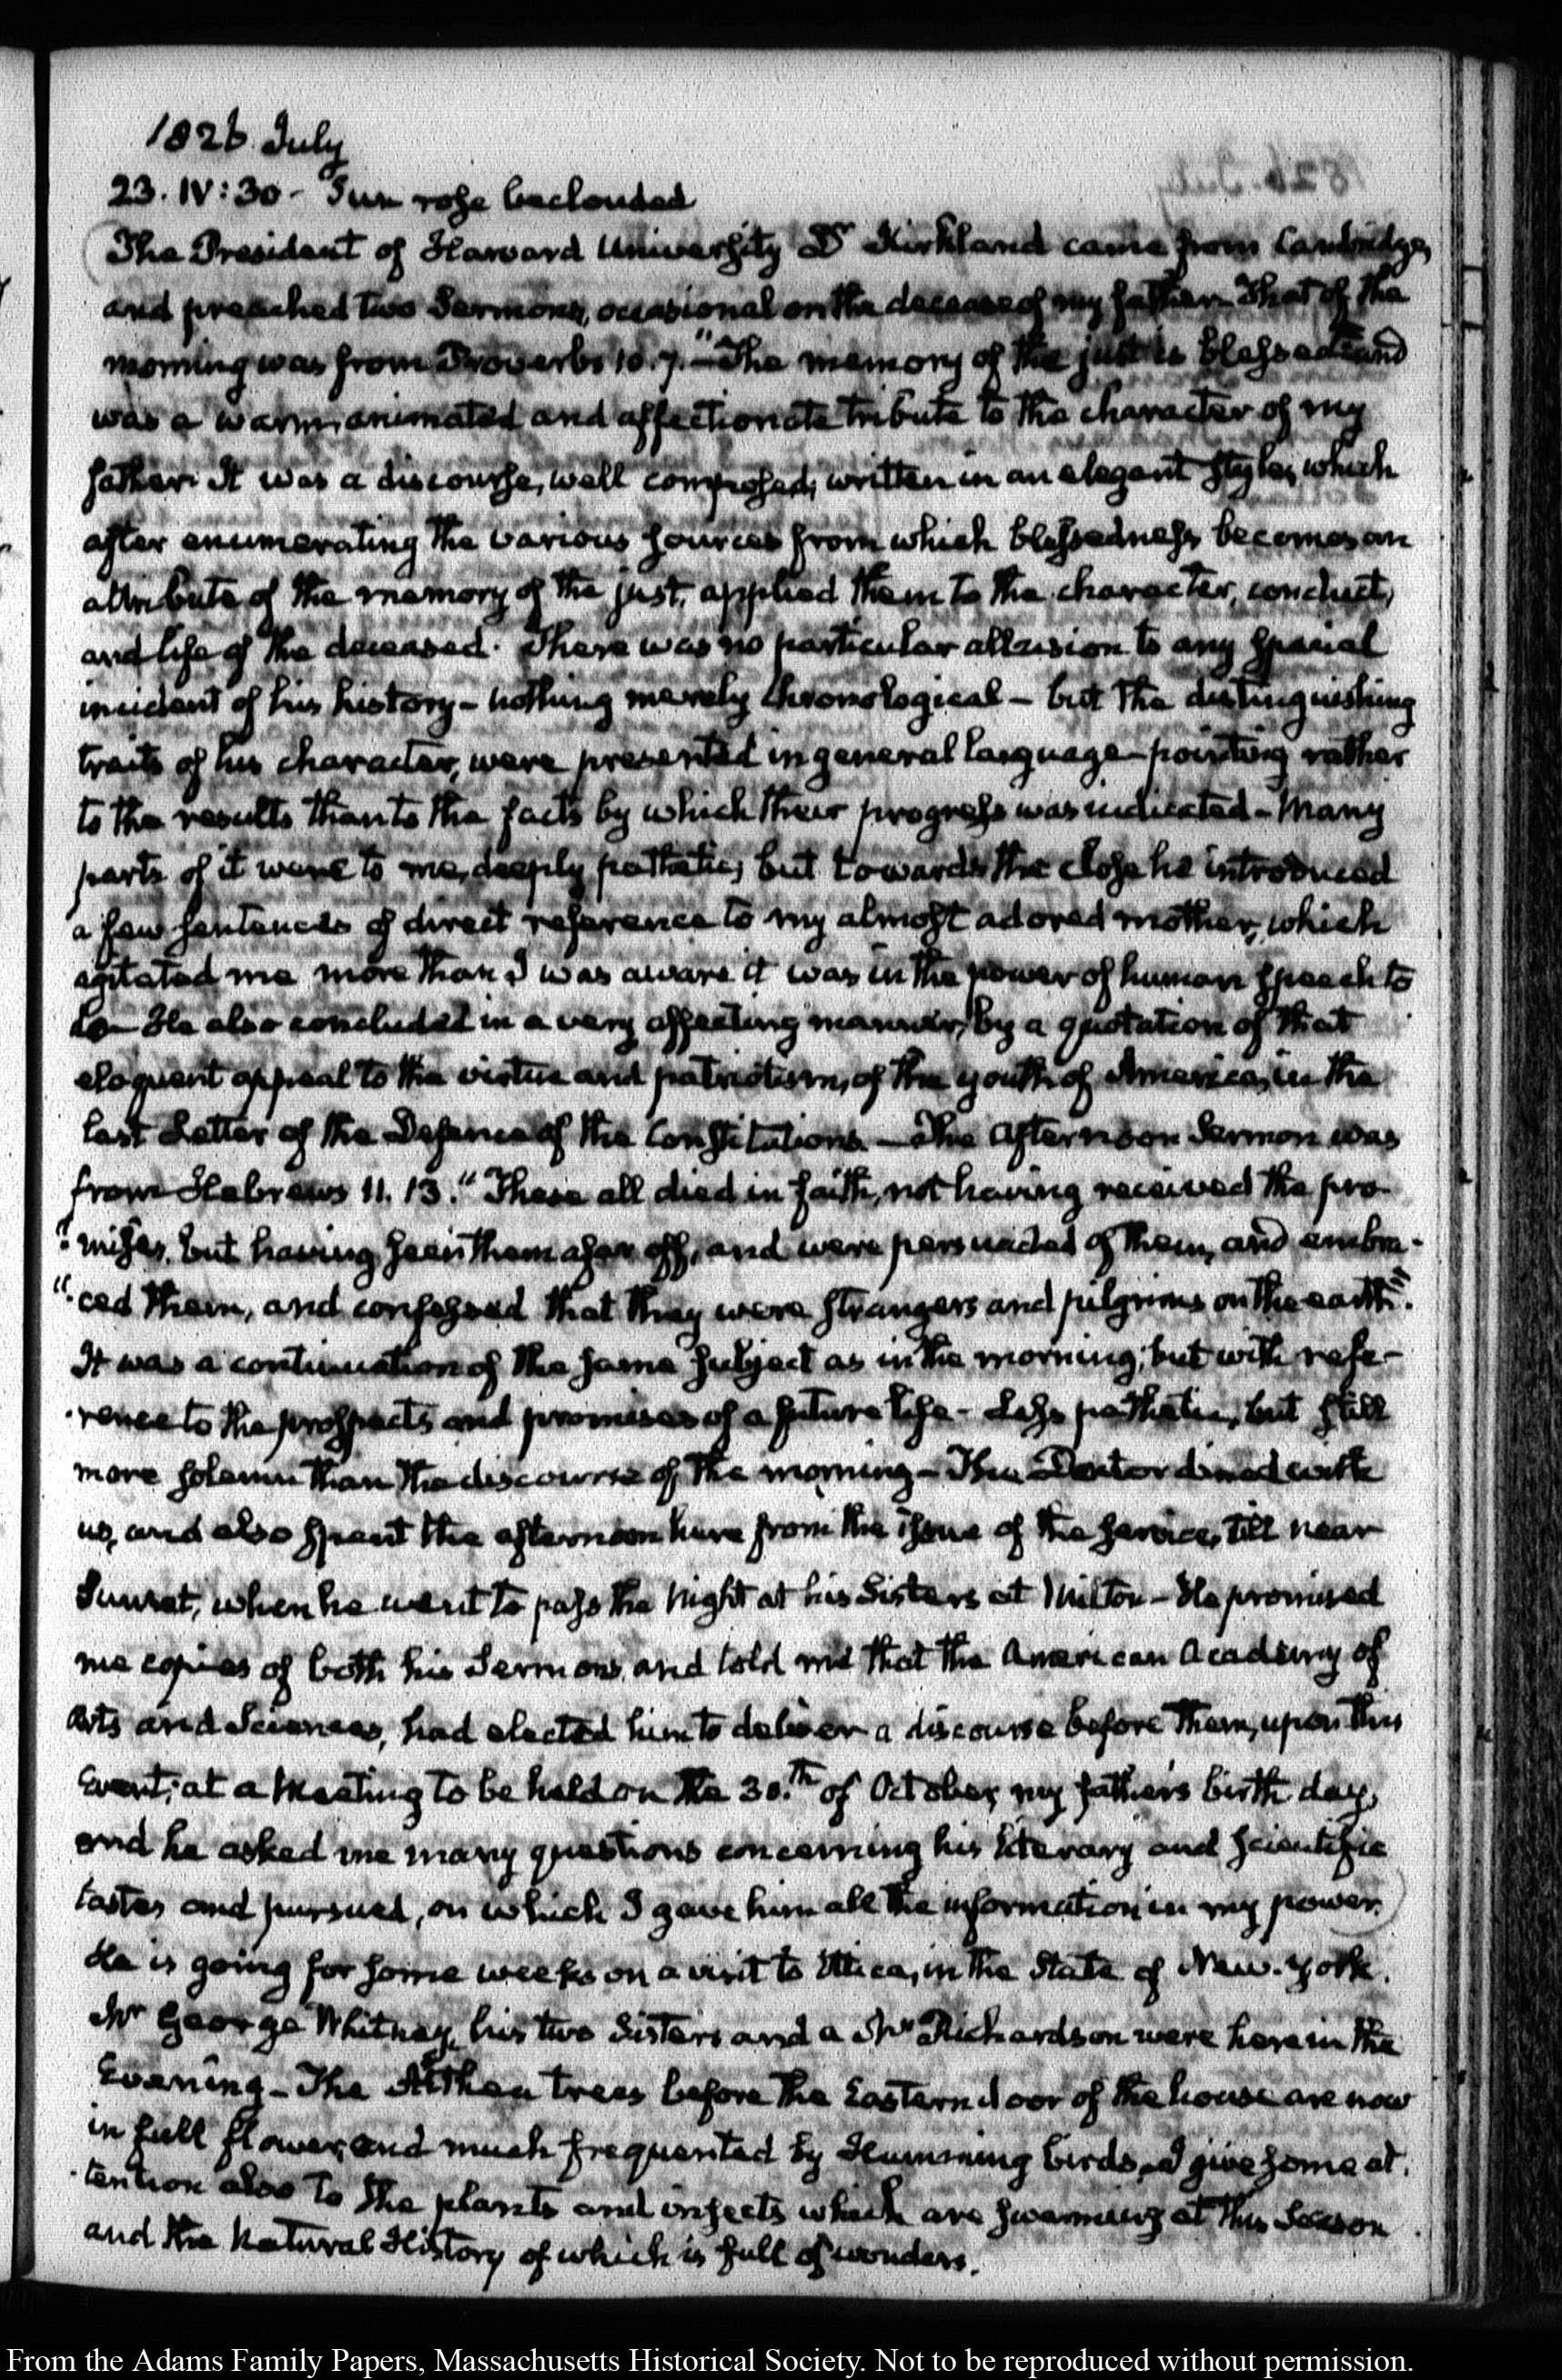 1826 July
23. IV:30 - Sun rose beclouded
The President of Harvard University Dr Kirkland came from Cambridge,
and preached two Sermons, occasional on the decease of my father. That of the
morning was from Proverbs 10.7. "The memory of the just is blessed" and
was a warm, animated and affectionate tribute to the character of my
father. It was a discourse, well composed, written in an elegant style, which
after enumerating the various sources from which blessedness becomes an
attribute of the memory of the just, applied them to the character, conduct,
and life of the deceased. There was no particular allusion to any special
incident of his history - nothing merely Chronological - but the distinguishing
traits of his character, were presented in general language - pointing rather
to the results than to the facts by which their progress was indicated - Many
parts of it were to me, deeply pathetic, but towards the close he introduced
a few sentences of direct reference to my almost adored mother, which
agitated me more than I was aware it was in the power of human speech to
do - He also concluded in a very affecting manner, by a quotation of that
eloquent appeal to the virtue and patriotism, of the youth of America, in the
last Letter of the Defence of the Constitutions. - The afternoon Sermon was
from Hebrews 11. 13. "These all died in faith, not having received the pro-
"mises, but having seen them afar off, and were persuaded of them, and embra-
"ced them, and confessed that they were strangers and pilgrims on the earth".
It was a continuation of the same subject as in the morning; but with refe-
rence to the prospects and promises of a future life - Less pathetic, but still
more solemn than the discourse of the morning - The Doctor dined with
us, and also spent the afternoon here from the issue of the service, till near
Sunset, when he went to pass the Night at his Sisters at Milton - He promised
me copies of both his Sermons, and told me that the American Academy of
Arts and Sciences, had elected him to deliver a discourse before them, upon this
Event; at a Meeting to be held on the 30.th of October, my father's birth day,
and he asked me many questions concerning his literary and scientific
tastes and pursuits, on which I gave him all the information in my power.
He is going for some weeks on a visit to Utica, in the State of New-York.
Mr George Whitney, his two Sisters and a Mr Richardson were here in the
Evening - The Althea trees before the Eastern door of the house are now
in full flower, and much frequented by Humming birds, I give some at-
tention also to the plants and insects which are swarming at this Season
and the Natural History of which is full of wonders.
From the Adams Family Papers, Massachusetts Historical Society. Not to be reproduced without permission.